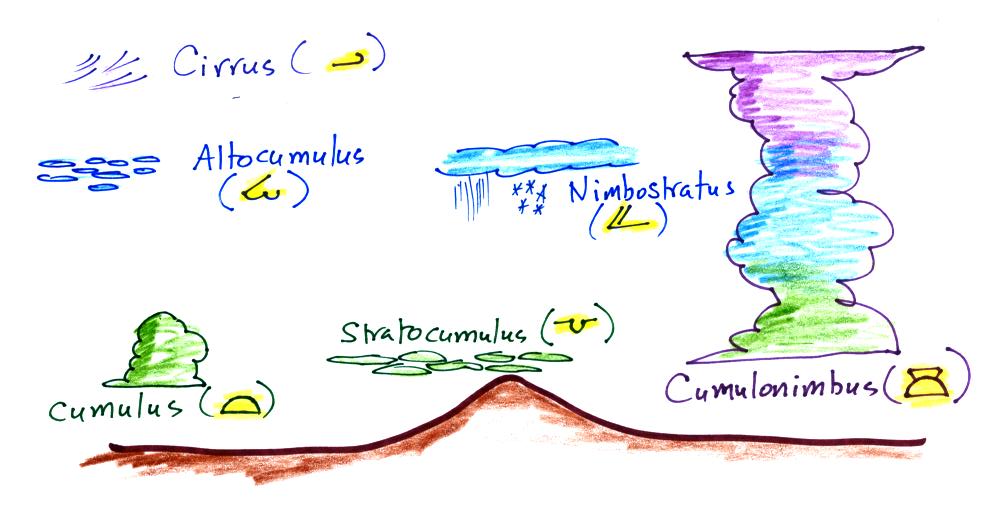 Cirrus ( )
Altocumulus
( )
Nimbostratus
( )
Stratocumulus ( )
Cumulus ( )
Cumulonimbus ( )